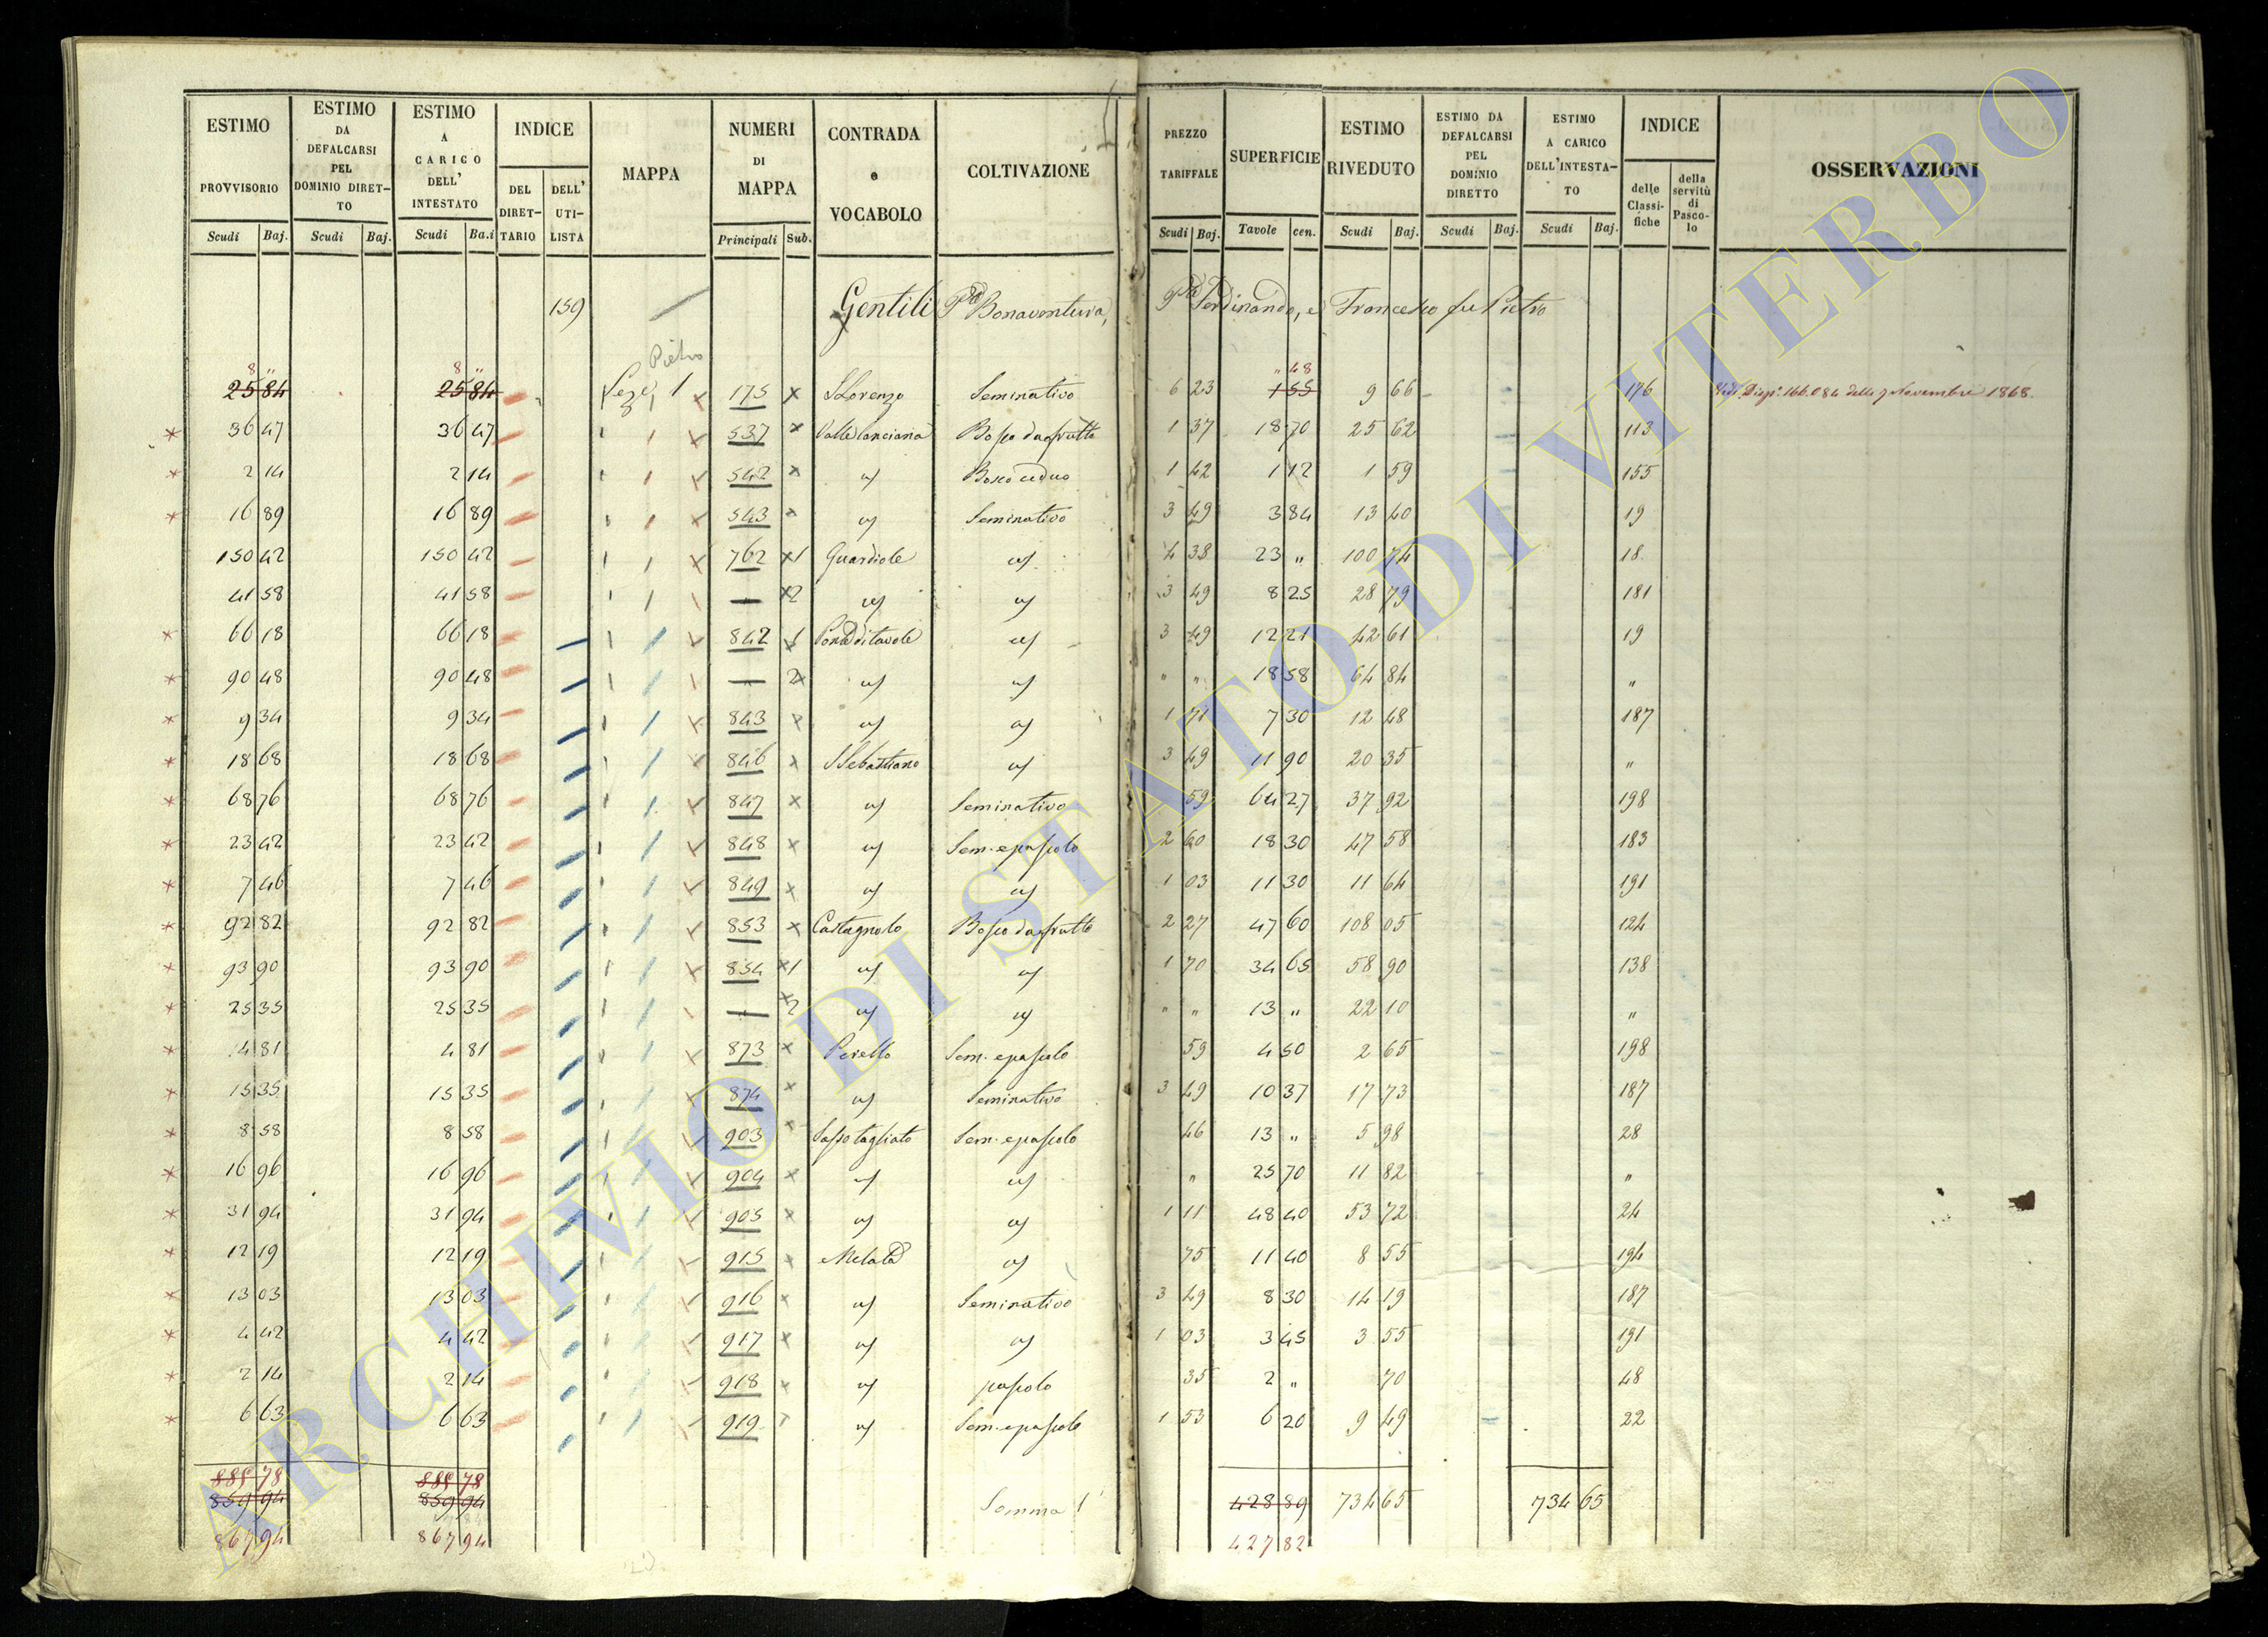 ESTIMO PROVVISORIO Scudi Baj.
ESTIMO DA DEFALCARSI PEL DOMINIO DIRET-TO Scudi Baj.
ESTIMO A CARICO DELL' INTESTATO Scudi Ba.i
INDICE DEL DIRET-TARIO DELL' UTI-LISTA
MAPPA
NUMERI DI MAPPA Principali Sub.
CONTRADA e VOCABOLO
COLTIVAZIONE
PREZZO TARIFFALE Scudi Baj.
SUPERFICIE Tavole cen.
ESTIMO RIVEDUTO Scudi Baj.
ESTIMO DA DEFALCARSI PEL DOMINIO DIRETTO Scudi Baj.
ESTIMO A CARICO DELL'INTESTA-TO Scudi Baj.
INDICE delle Classi-fiche della servitù di Pasco-lo
OSSERVAZIONI
159 Gentili Bonaventura, Ferdinando, e Francesco fu Pietro
Pietro
8 " 8 " " 48
25 84 25 84 Seze 1 175 S Lorenzo Seminativo 6 23 1 55 9 66 176 Disp. 166.084 delli 7 Novembre 1868.
36 47 36 47 537 Valle lanciana Bosco da frutto 1 37 18 70 25 62 113
2 14 2 14 542 Bosco ceduo 1 42 1 12 1 59 155
16 89 16 89 543 Seminativo 3 49 3 84 13 40 19
150 42 150 42 762 1 Guardiole 4 38 23 " 100 74 18
41 58 41 58 — 2 3 49 8 25 28 79 181
66 18 66 18 842 1 3 49 12 21 42 61 19
90 48 90 48 — 2 " " 18 58 64 84 "
9 34 9 34 843 1 71 7 30 12 48 187
18 68 18 68 846 S Sebastiano 3 49 11 90 20 35 "
68 76 68 76 847 Seminativo 59 64 27 37 92 198
23 42 23 42 848 Sem. e pascolo 2 60 18 30 47 58 183
7 46 7 46 849 1 03 11 30 11 64 191
92 82 92 82 853 Castagnolo Bosco da frutto 2 27 47 60 108 05 124
93 90 93 90 854 1 1 70 34 65 58 90 138
25 35 25 35 — 2 " " 13 " 22 10 "
4 81 4 81 873 Perello Sem. e pascolo 59 4 50 2 65 198
15 35 15 35 874 Seminativo 3 49 10 37 17 73 187
8 58 8 58 903 Sasso tagliato Sem. e pascolo 46 13 " 5 98 28
16 96 16 96 904 " 25 70 11 82 "
31 94 31 94 905 1 11 48 40 53 72 24
12 19 12 19 915 75 11 40 8 55 194
13 03 13 03 916 Seminativo 3 49 8 30 14 19 187
4 42 4 42 917 1 03 3 45 3 55 191
2 14 2 14 918 pascolo 35 2 " 70 48
6 63 6 63 919 Sem. e pascolo 1 53 6 20 9 49 22
859 94 859 94 Somma 428 89 734 65 734 65
867 94 867 94 427 82
ARCHIVIO DI STATO DI VITERBO